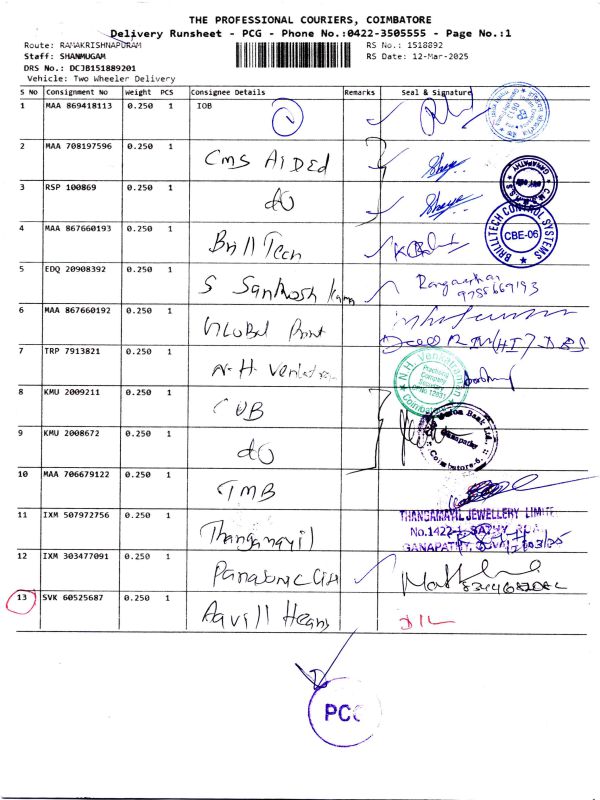 THE PROFESSIONAL COURIERS, COIMBATORE
Delivery Runsheet - PCG - Phone No.:0422-3505555 - Page No.:1
Route: RAMAKRISHNAPURAM RS No.: 1518892
Staff: SHANMUGAM RS Date: 12-Mar-2025
DRS No.: DCJB151889201
Vehicle: Two Wheeler Delivery
S No Consignment No Weight PCS Consignee Details Remarks Seal & Signature
1 MAA 869418113 0.250 1 IOB
2 MAA 708197596 0.250 1 CMS AIDEd
GANAPATHY
3 RSP 100869 0.250 1 do
4 MAA 867660193 0.250 1 Brill Tech
BRILLTECH CONTROL SYSTEMS
CBE-06
5 EDQ 20908392 0.250 1 S Santhosh
6 MAA 867660192 0.250 1 Global Point
7 TRP 7913821 0.250 1 N.H. Venkatraman
N.H. Venkatraman
Practising
Company
Secretary
Coimbatore
8 KMU 2009211 0.250 1 CUB
9 KMU 2008672 0.250 1 do
Ganapathy
Coimbatore-6.
10 MAA 706679122 0.250 1 TMB
11 IXM 507972756 0.250 1 Thangamayil
THANGAMAYIL JEWELLERY LIMITE
No.1422-1, SATHY ROA
GANAPATHY,
12 IXM 303477091 0.250 1 Panasonic
13 SVK 60525687 0.250 1 Aavill Heans
D/L
PCG